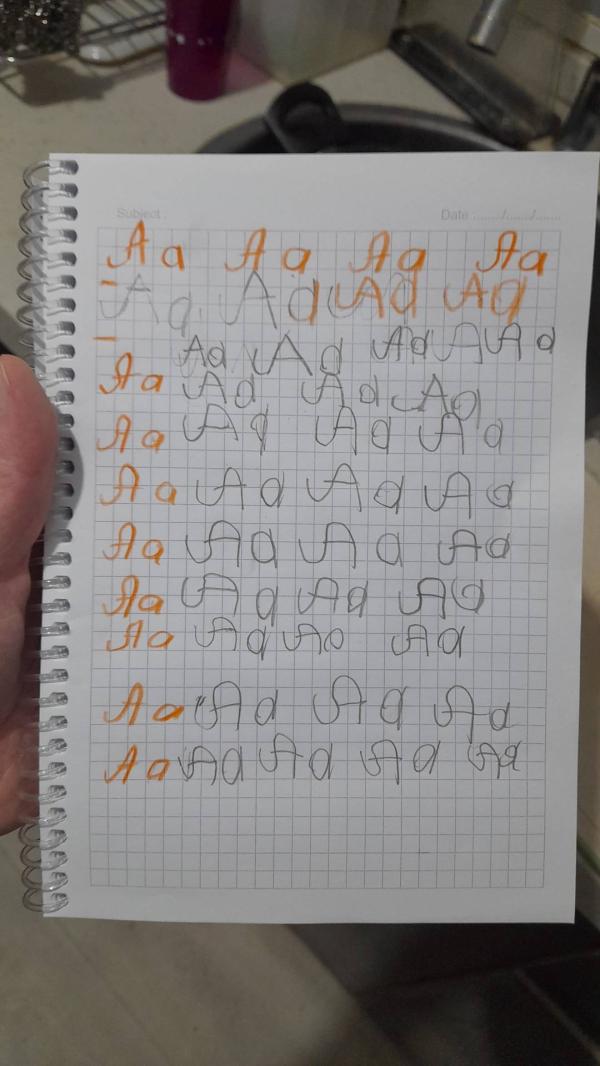 Subject : Date : ....../....../......
Aa Aa Aa Aa
Aa Aa Aa Aa
Aa Aa Aa A Aa
Aa Aa Aa Aa
Aa Aa Aa Aa
Aa Aa Aa Aa
Aa Aa Aa Aa
Aa Aa Aa Aa
Aa Aa Aa Aa
Aa Aa Aa Aa
Aa Aa Aa Aa Aa